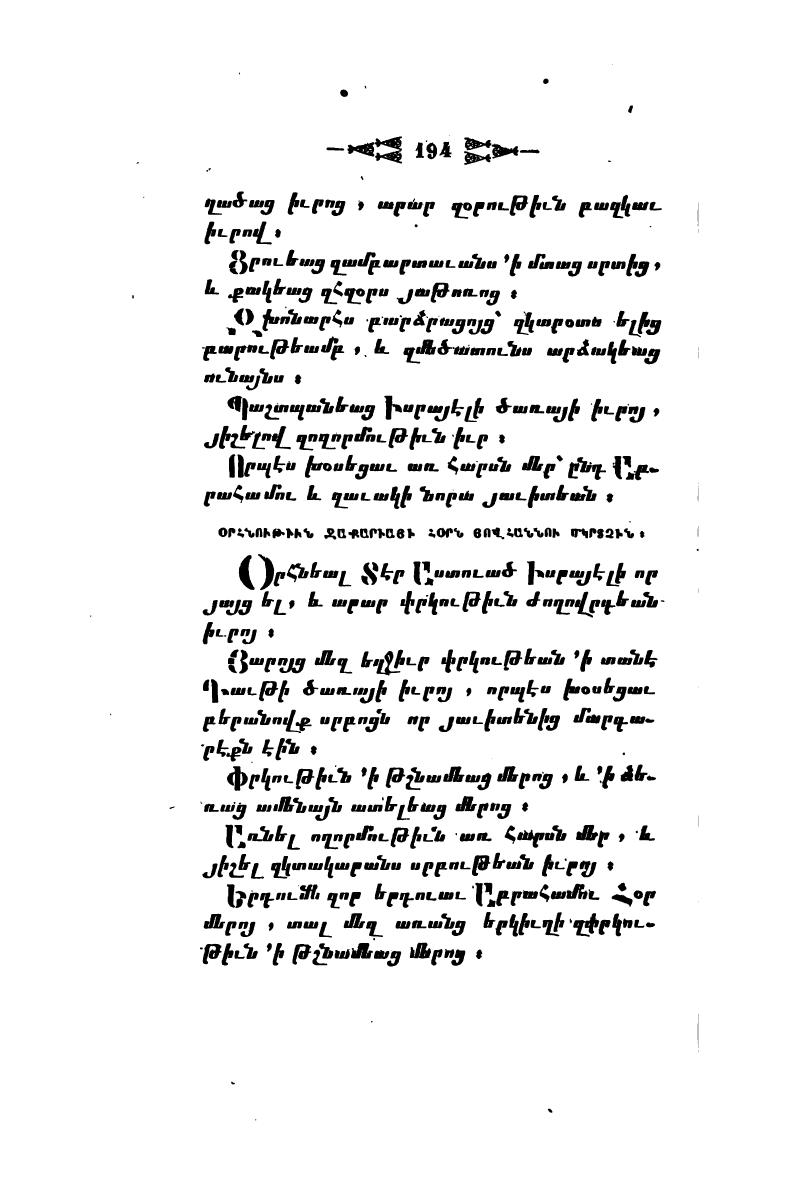 194
ղածաց իւրոց , արար զօրութիւն բազկաւ
իւրով ։
Ցրուեաց զամբարտաւանս ՚ի մտաց սրտից ,
և քակեաց զհզօրս յաթոռոց ։
Զխոնարհս բարձրացոյց՝ զկարօտս ելից
բարութեամբ , և զմեծատունս արձակեաց
ունայնս ։
Պաշտպանեաց Իսրայէլի ծառայի իւրոյ ,
յիշելով զողորմութիւն իւր ։
Որպէս խօսեցաւ առ հարսն մեր՝ ընդ Աբ-
րահամու և զաւակի նորա յաւիտեան ։
ՕՐՀՆՈՒԹԻՒՆ ԶԱՔԱՐԻԱՅԻ ՀՕՐՆ ՅՈՎՀԱՆՆՈՒ ՄԿՐՏՉԻՆ ։
Օրհնեալ Տէր Աստուած Իսրայէլի որ
յայց ել , և արար փրկութիւն ժողովրդեան
իւրոյ ։
Յարոյց մեզ եղջիւր փրկութեան ՚ի տանէ
Դաւթի ծառայի իւրոյ , որպէս խօսեցաւ
բերանովք սրբոցն որ յաւիտենից մարգա-
րէքն էին ։
Փրկութիւն ՚ի թշնամեաց մերոց , և ՚ի ձե-
ռաց ամենայն ատելեաց մերոց ։
Առնել ողորմութիւն առ հարսն մեր , և
յիշել զկտակարանս սրբութեան իւրոյ ։
Երդումն զոր երդուաւ Աբրահամու Հօր
մերոյ , տալ մեզ առանց երկիւղի զփրկու-
թիւն ՚ի թշնամեաց մերոց ։